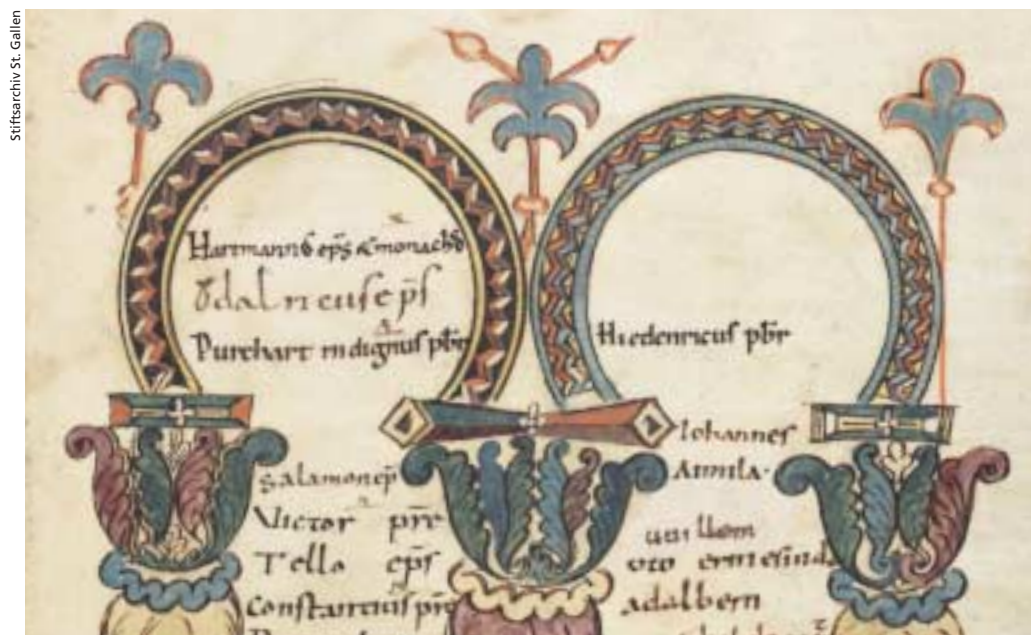 Stiftsarchiv St. Gallen
Hartmannus ep̄s & monachus
Vdalricus ep̄s
Purchart indignus pb̄r
salamon ep̄
Victor pr̄e
Tello ep̄s
Constantius pr̄e
Hiedenricus pb̄r
Iohannes
Aimila·
uuillem
oto ermesind
adalbern